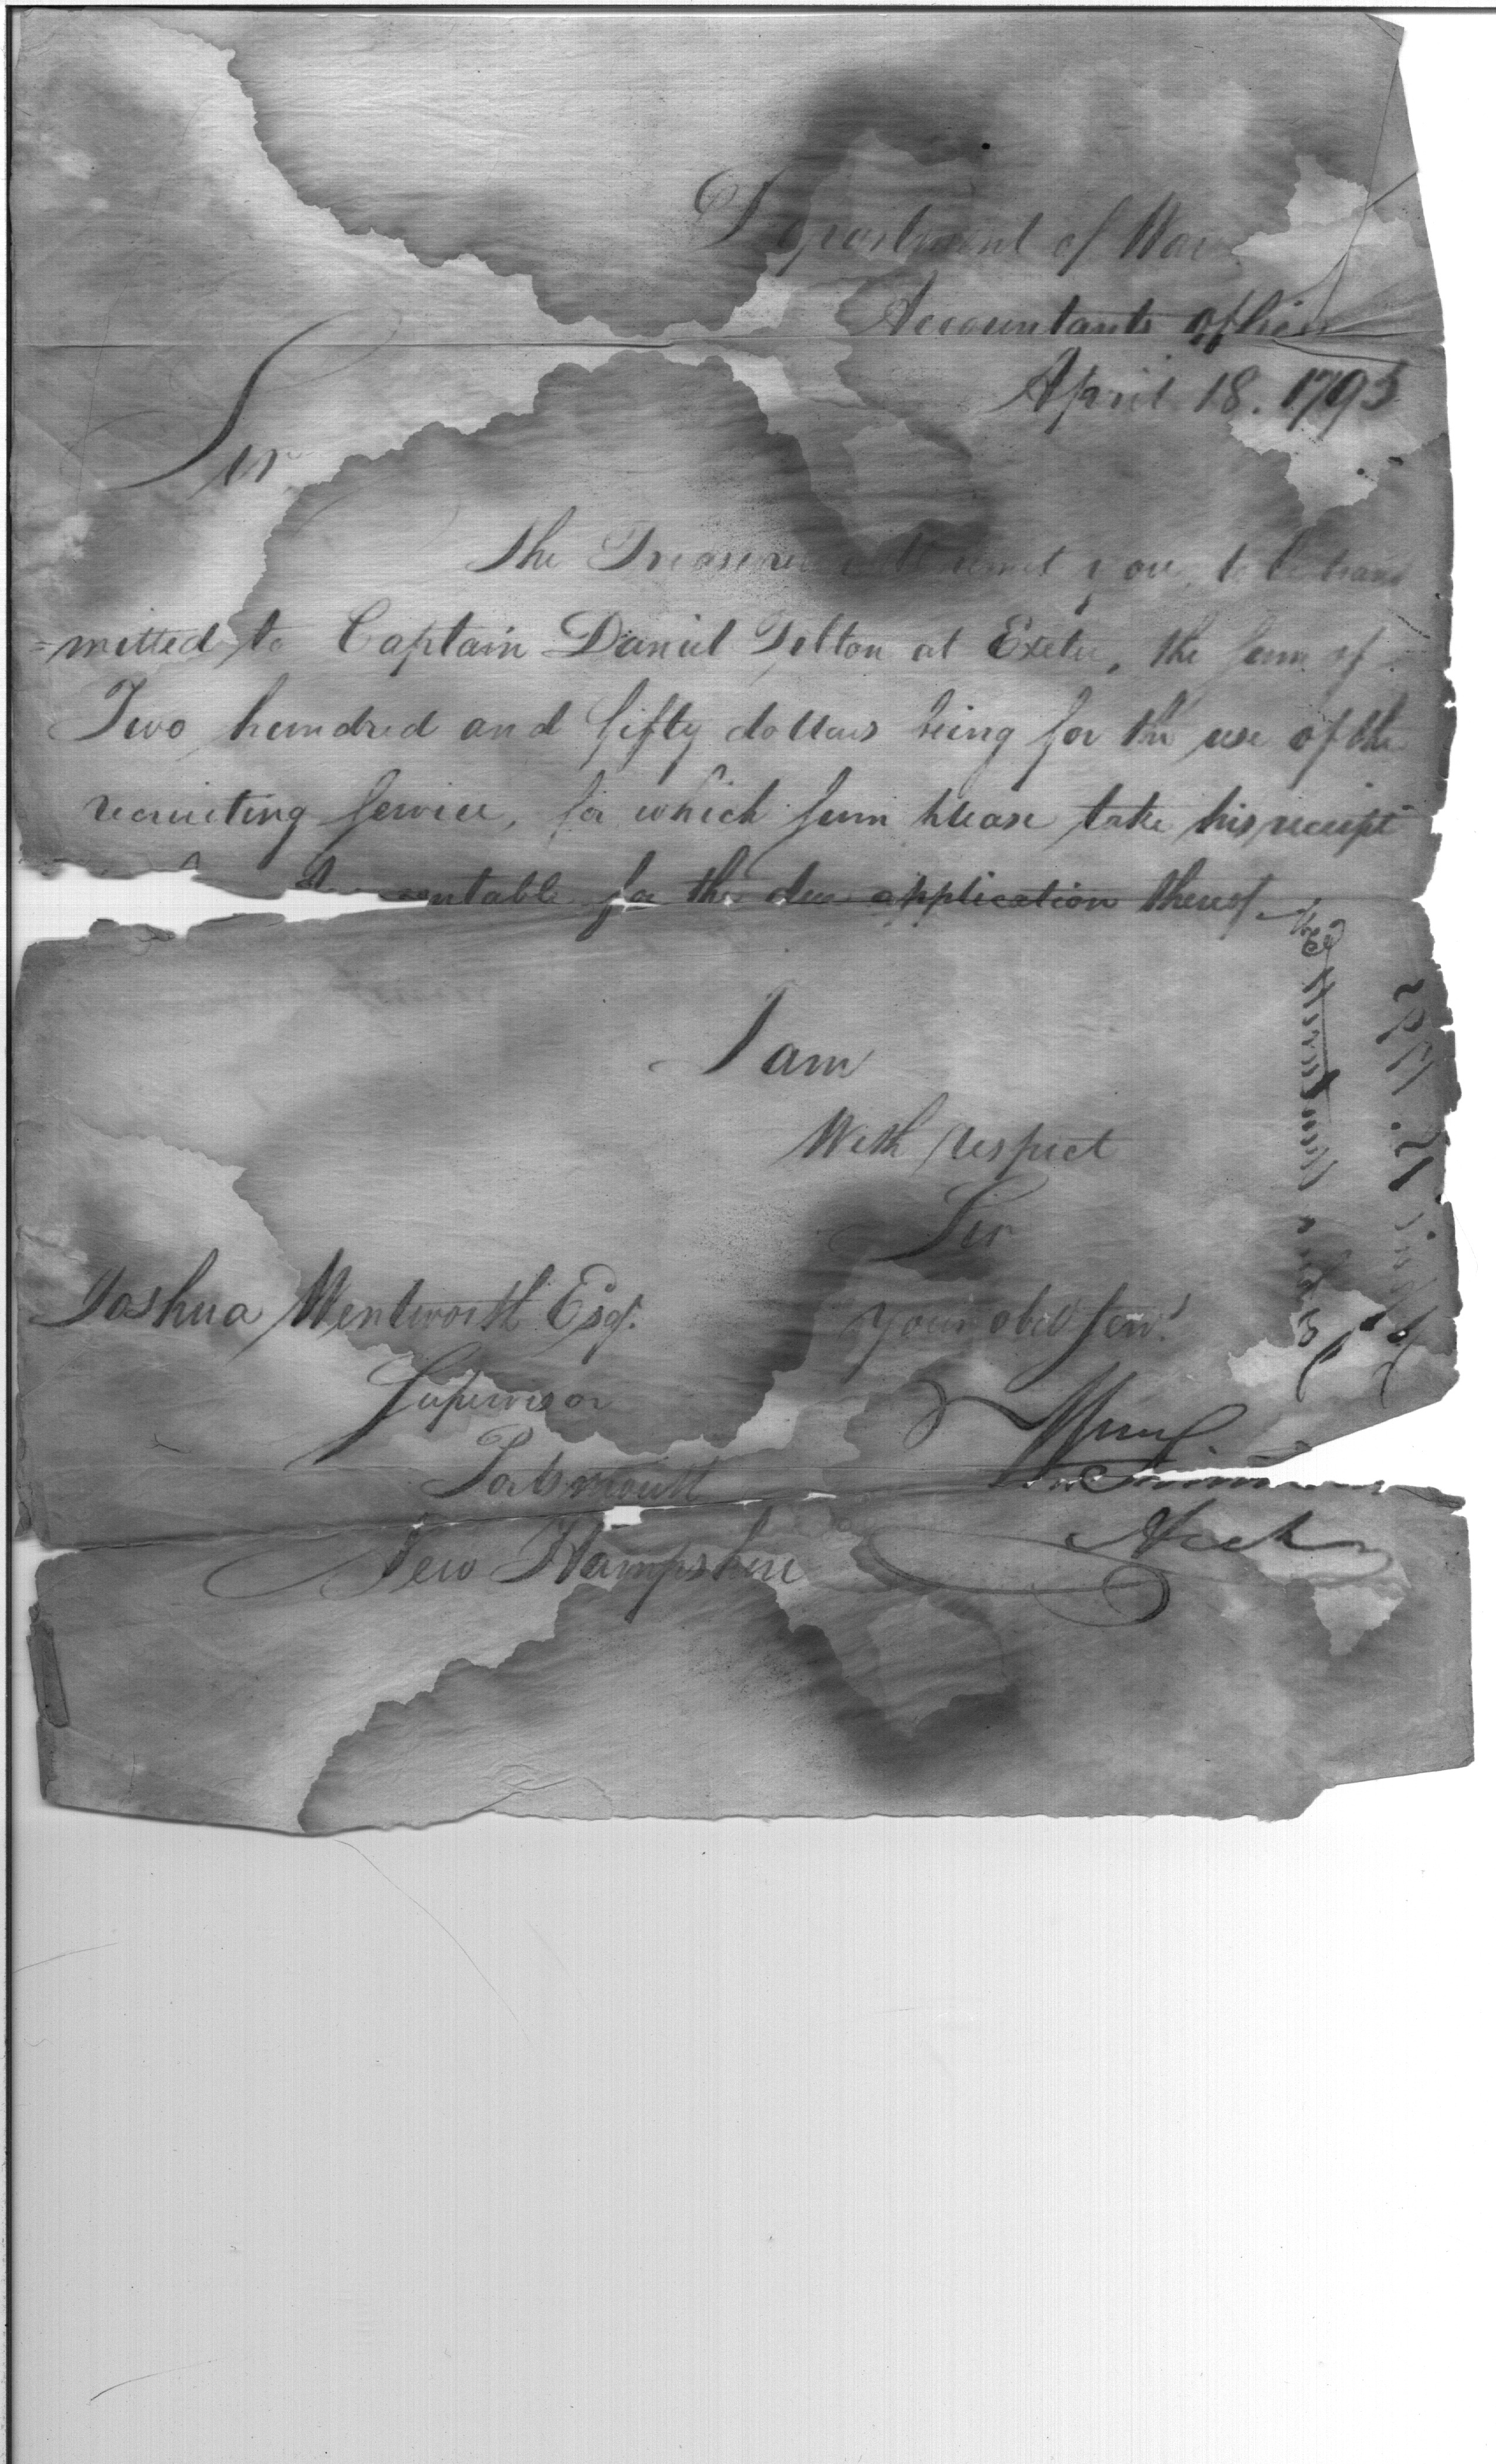 Department of War
Accountants office
April 18. 1793
Sir
The Treasurer will remit you, to be trans
=mitted to Captain Daniel Tilton at Exeter, the sum of
Two hundred and fifty dollars being for the use of the
recruiting service, for which sum please take his receipt
for the due application thereof.
I am
With respect
Sir
Your obed serv!
Joshua Wentworth Esqr.
Supervisor
Portsmouth
New Hampshire
Acct